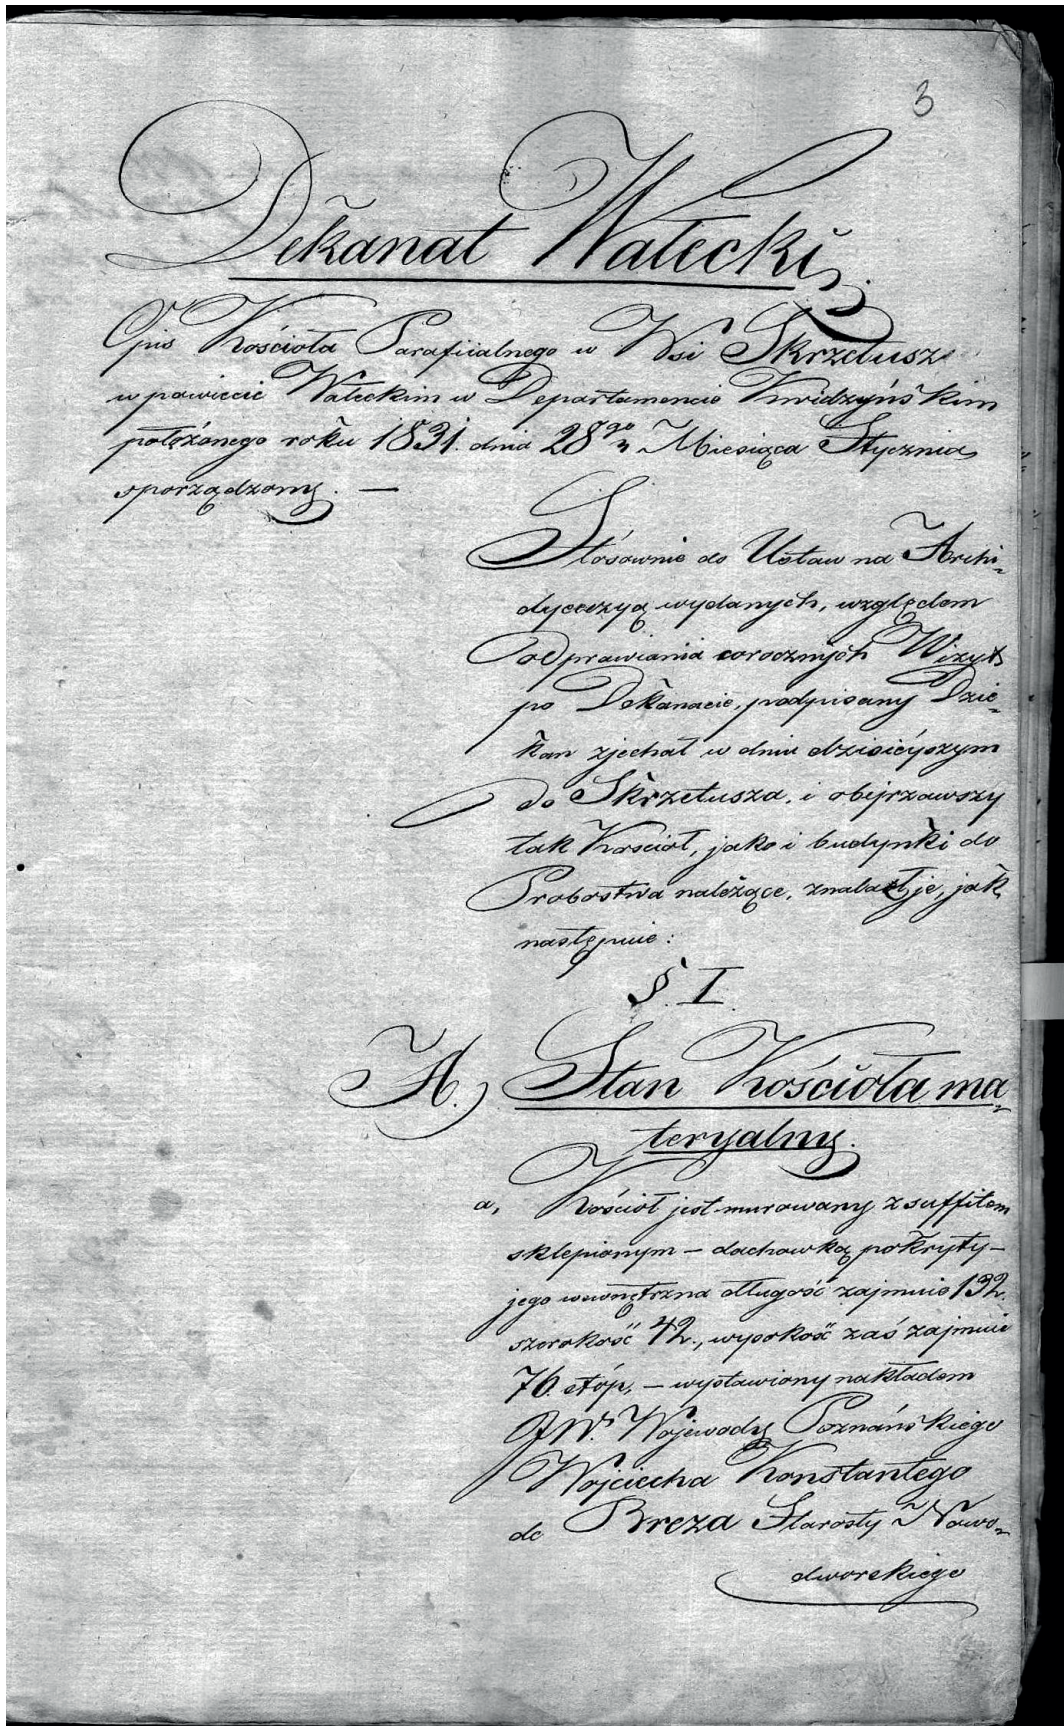 3
Dekanat Wałecki.
Opis Kościoła Parafiialnego w Wsi Skrzetusz
w powiecie Wałeckim w Departamencie Kwidzyńskim
położonego roku 1831. dnia 28go Miesiąca Stycznia
sporządzony. —
Stósownie do Ustaw na Archi-
dyecezyą wydanych, względem
odprawiania corocznych Wizyt
po Dekanacie, podpisany Dzie-
kan zjechał w dniu dzisieyszym
do Skrzetusza, i obejrzawszy
tak Kościoł, jako i budynki do
Probostwa należące, znalazł je, jak
następuie:
§. I.
A.) Stan Kościoła ma-
teryalny.
a, Kościoł jest murowany z suffitem
sklepionym – dachowką pokryty –
jego wewnętrzna długość zajmuie 132.
szerokość 42., wysokość zaś zajmuie
76. stóp, – wystawiony nakładem
JW. Wojewody Poznańskiego
Wojciecha Konstantego
de Breza Starosty Nowo-
dworskiego